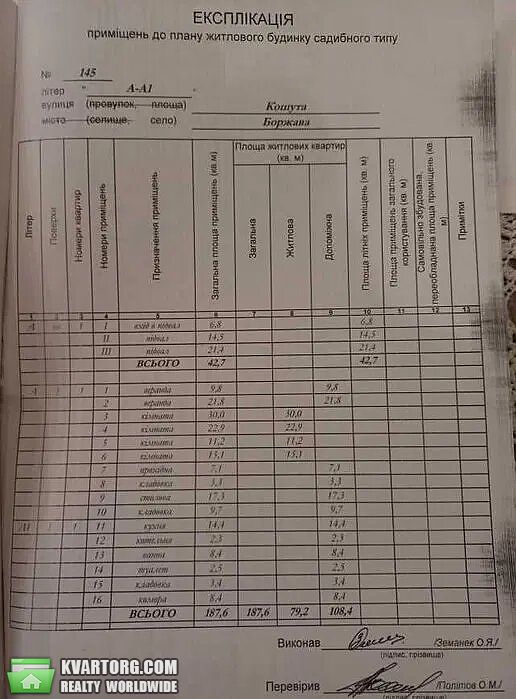 ЕКСПЛІКАЦІЯ
приміщень до плану житлового будинку садибного типу
№ 145
літер " А-А1
вулиця (провулок, площа) Кошута
місто (селище, село) Боржава
Літер
Поверхи
Номери квартир
Номери приміщень
Призначення приміщень
Загальна площа приміщень (кв. м)
Площа житлових квартир (кв. м)
Загальна
Житлова
Допоміжна
Площа літніх приміщень (кв. м)
Площа приміщень загального користування (кв. м)
Самовільно збудована, переобладнана площа приміщень (кв. м)
Примітки
1 2 3 4 5 6 7 8 9 10 11 12 13
А 1 I вхід в підвал 6,8 6,8
II підвал 14,5 14,5
III підвал 21,4 21,4
ВСЬОГО 42,7 42,7
А 1 1 1 веранда 9,8 9,8
2 веранда 21,8 21,8
3 кімната 30,0 30,0
4 кімната 22,9 22,9
5 кімната 11,2 11,2
6 кімната 15,1 15,1
7 прихідна 7,1 7,1
8 кладовка 3,3 3,3
9 столова 17,3 17,3
10 кладовка 9,7 9,7
А1 1 1 11 кухня 14,4 14,4
12 котельня 2,3 2,3
13 ванна 8,4 8,4
14 туалет 2,5 2,5
15 кладовка 3,4 3,4
16 комора 8,4 8,4
ВСЬОГО 187,6 187,6 79,2 108,4
Виконав /Земанек О.Я./
(підпис, прізвища)
Перевірив /Політов О.М./
(підпис, прізвище)
KVARTORG.COM
REALTY WORLDWIDE